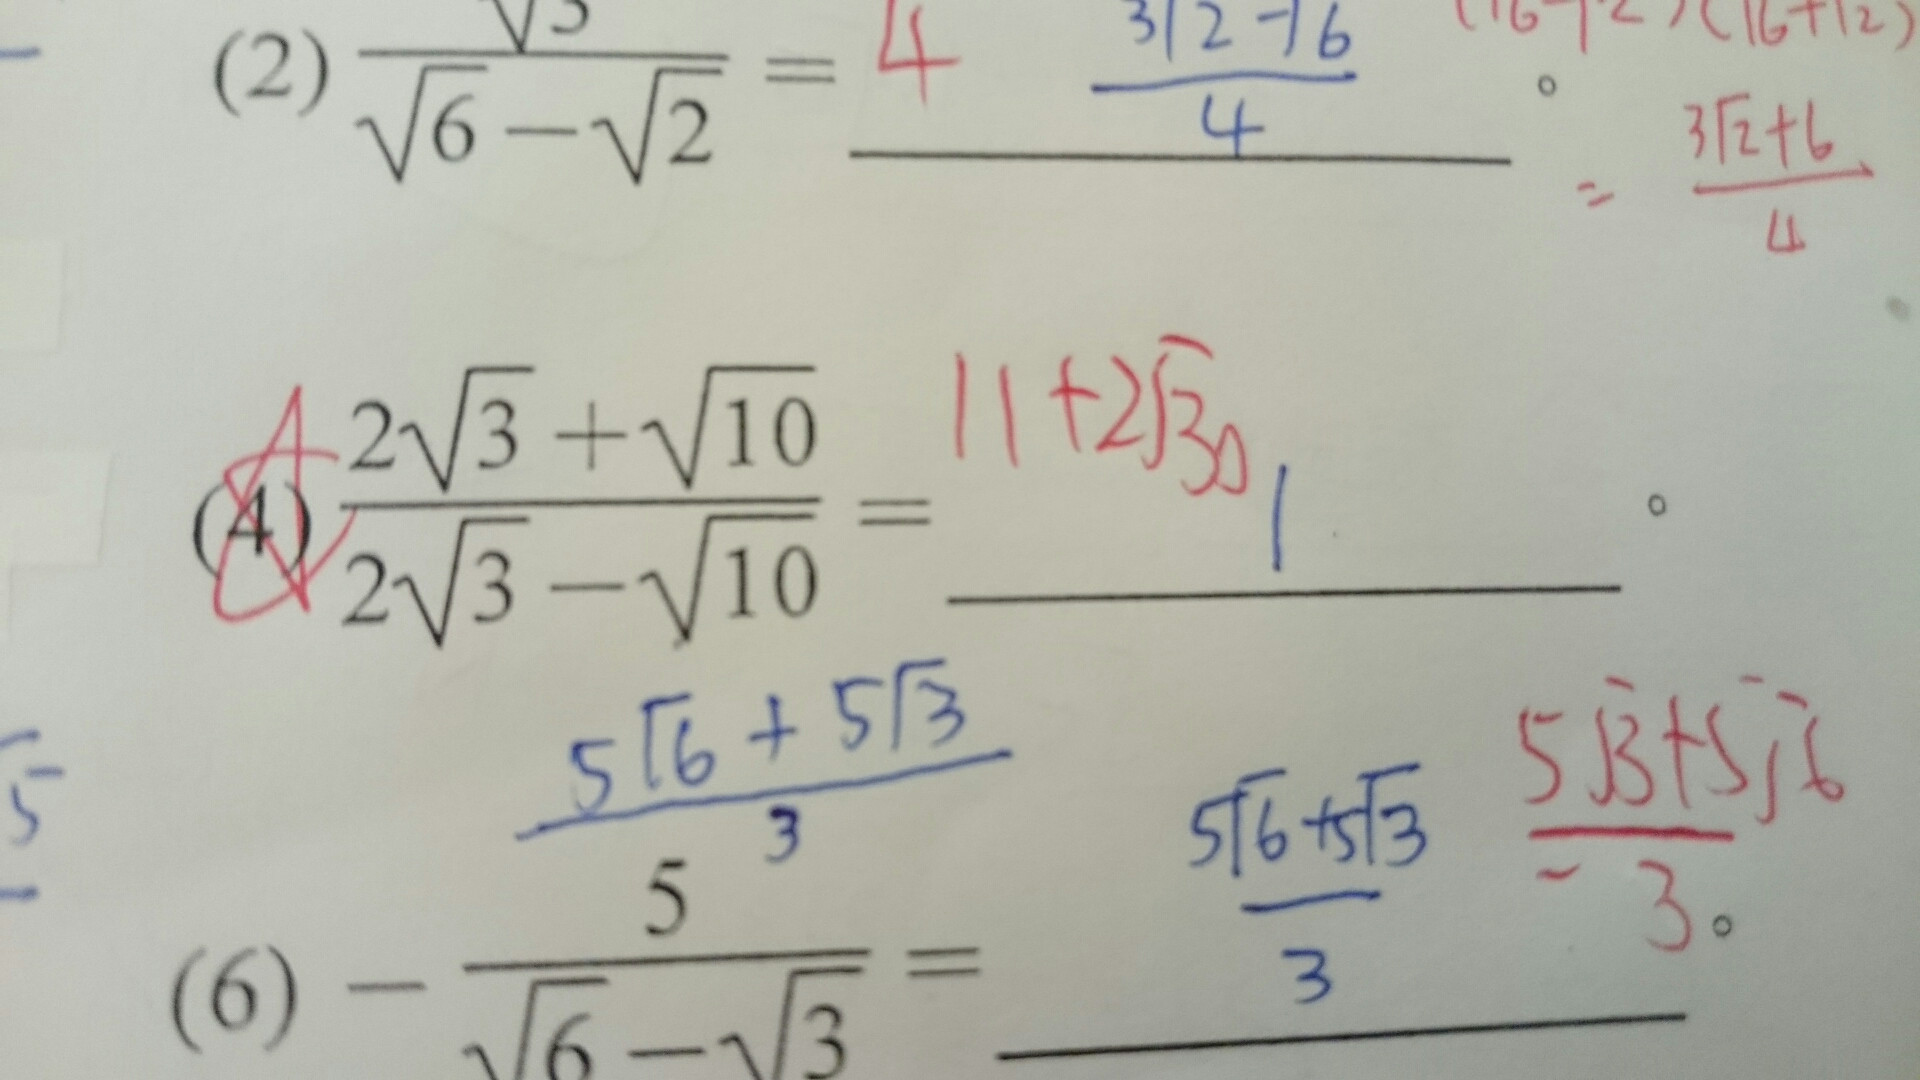 (2) √3/(√6−√2) = 4 (3√2−√6)/4 。
(√6−√2)(√6+√2)
= (3√2+6)/4
(4) (2√3+√10)/(2√3−√10) = 11+2√30 1 。
(5√6+5√3)/3
(6) −5/(√6−√3) = (5√6+5√3)/3 −(5√3+5√6)/3 。